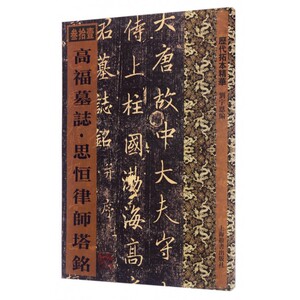 叁拾壹
高福墓誌·思恒律師塔銘
大唐故中大夫守
侍上柱國渤海高
君墓誌銘并序
歷代拓本精華
上海辭書出版社